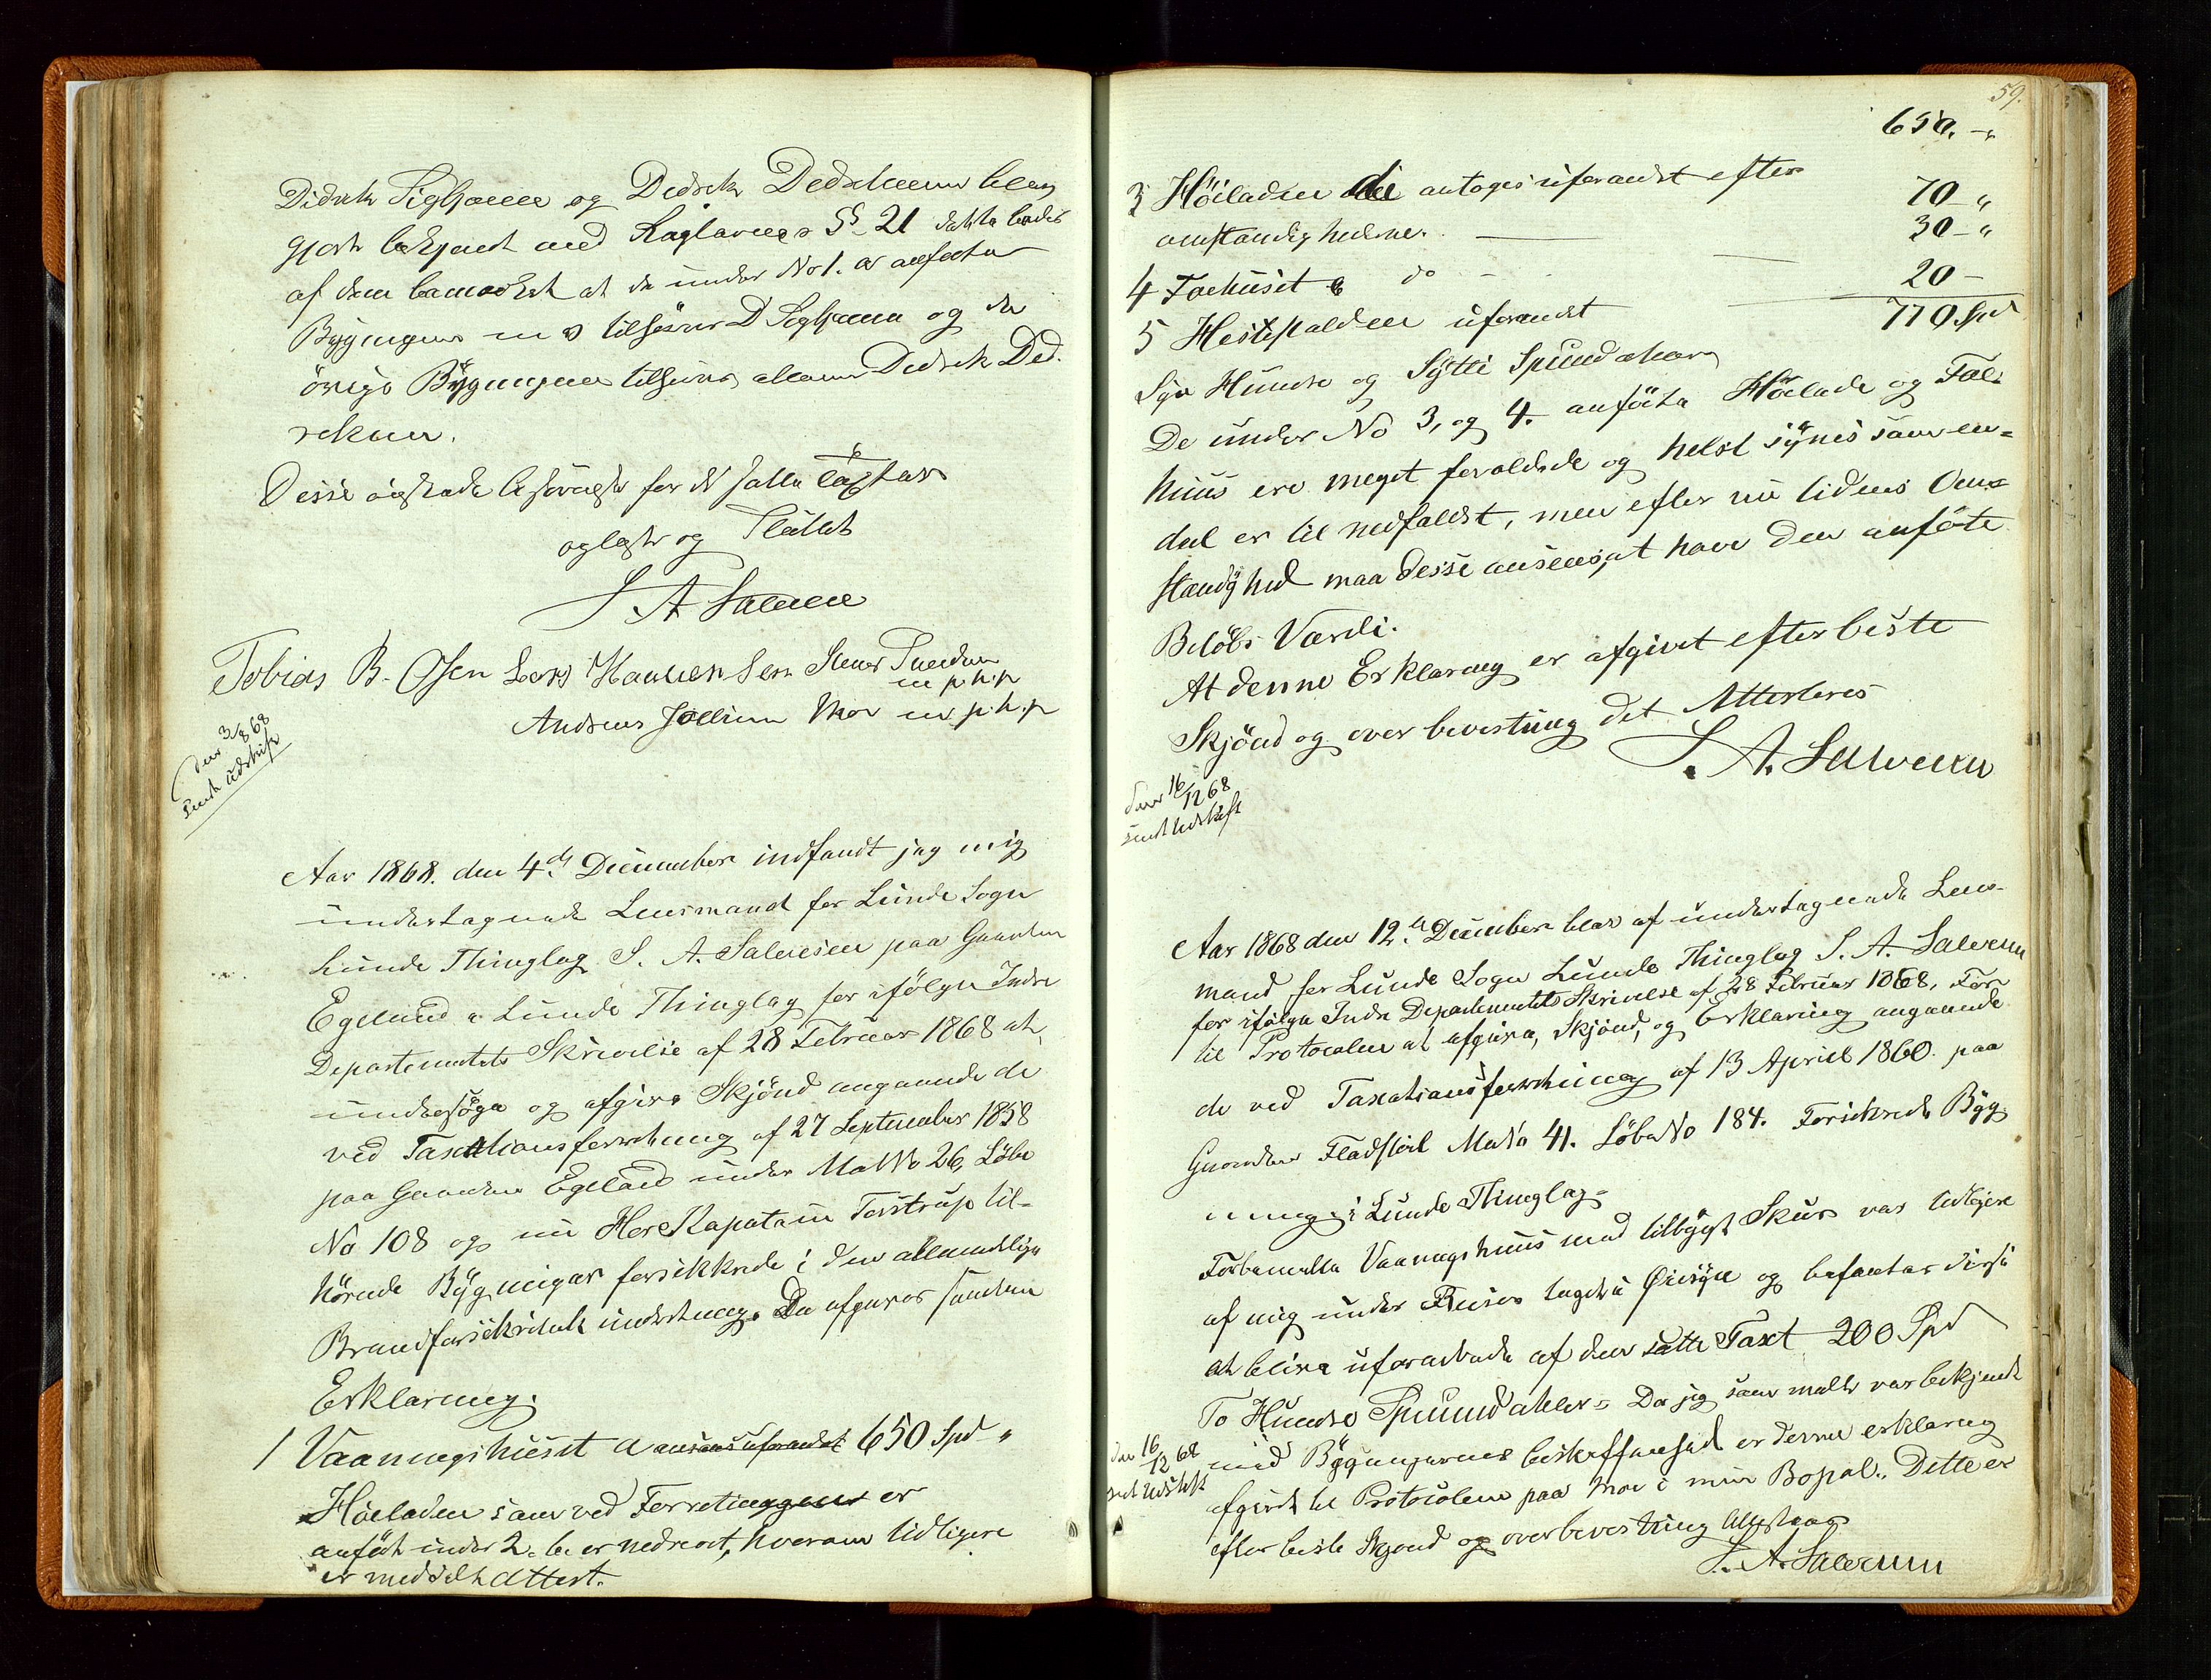 Didrik Sigbjønsen og Dedrik Dedriksen blev
gjort bekjent med Reglernes §§ 21 dette blev
af dem bemærket at de under No 1. a anførte
Bygninger m v tilhører D Sigbjønsen og de
örige Bygninger tilhører allene Dedrik Ded.
riksen.
Desse öiestede besörges for di satte taxter
oplest og Sluttet
S A Salvesen
Tobias B. Osen Lars Hansen Sen
m p h. p
Andreas Jollesen Moi m p. h. p
den 3/8 68
sendt udskrift
Aar 1868. den 4de December indfandt jeg mig
undertegnede Lensmand for Lunde Sogn
Lunde Thinglag S. A. Salvesen paa Gaarden
Egelund i Lunde Thinglag for ifölge Indre
Departementets Skrivelse af 28 Februar 1868 at,
undersöge og afgive Skjönd angaaende de
ved Taxationsforretning af 27 September 1858
paa Gaarden Egeland under Mat No 26, Löbe
No 108 og nu Her Kapatain Torstrup til-
hörende Bygninger forsikkrede i den allmindelige
Brandforsikrings indretning. Da afgives saadan
Erklaring.
1 Vaaningshuset a ansees uforandret 650 Spd "
Höeladen som ved Forretninggen er
anfört under 2. b. er nedrevet, hvorom tidligere
er meddelt Attest.
59.
650. -"
3 Höiladen de antages uforandret efter
omstændighederne. — 70 - "
4 Foehuset b do - 30 - "
5 Hestestalden uforandret 20 -
770 Spd
Syv Hundre og Sytti Speciedaler
De under No 3, og 4. anförte Höelade og Foe-
huus ere meget foraldede og helst synes som en-
del er til nedfaldet, men efter nu tidens Om-
stændighed maa desse ansees, at have den anförte
Belöbs Verdi.
At denne Erklaring er afgivet efter beste
Skjönd og overbevistning det Atteres
S. A. Salvesen
den 16/12 68
sendt Udskrift
Aar 1868 den 12te December blev af undertegnede Lens-
mand for Lunde Sogn Lunde Thinglag S. A. Salvesen
for ifölge Indre Departementets Skrivelse af 28 Februar 1868, For
til Protocolen at afgive, Skjönd, og Erklaring angaaende
de ved Taxationsforretning af 13 April 1860. paa
Gaarden Fladstöl Mat No 41. Löbe No 184. Forsikrede Byg
ning i Lunde Thinglag -
Forbemelte Vaaningshuus med tilbygt Skur var tidligere
af mig under Reiser taget i Öiesyn og befantes disse
at blive uforandrede af den satte Taxt 200 Spd
To Hundre Speciedaler - Da jeg som meldt var bekjendt
med Bygningernes beskaffenhed er denne erklaring
afgivet til Protocolen paa Moi i min Bopæl. Dette er
efter beste Skjönd og overbevistning
S. A. Salvesen
den 16/12 68
sendt Udskrift